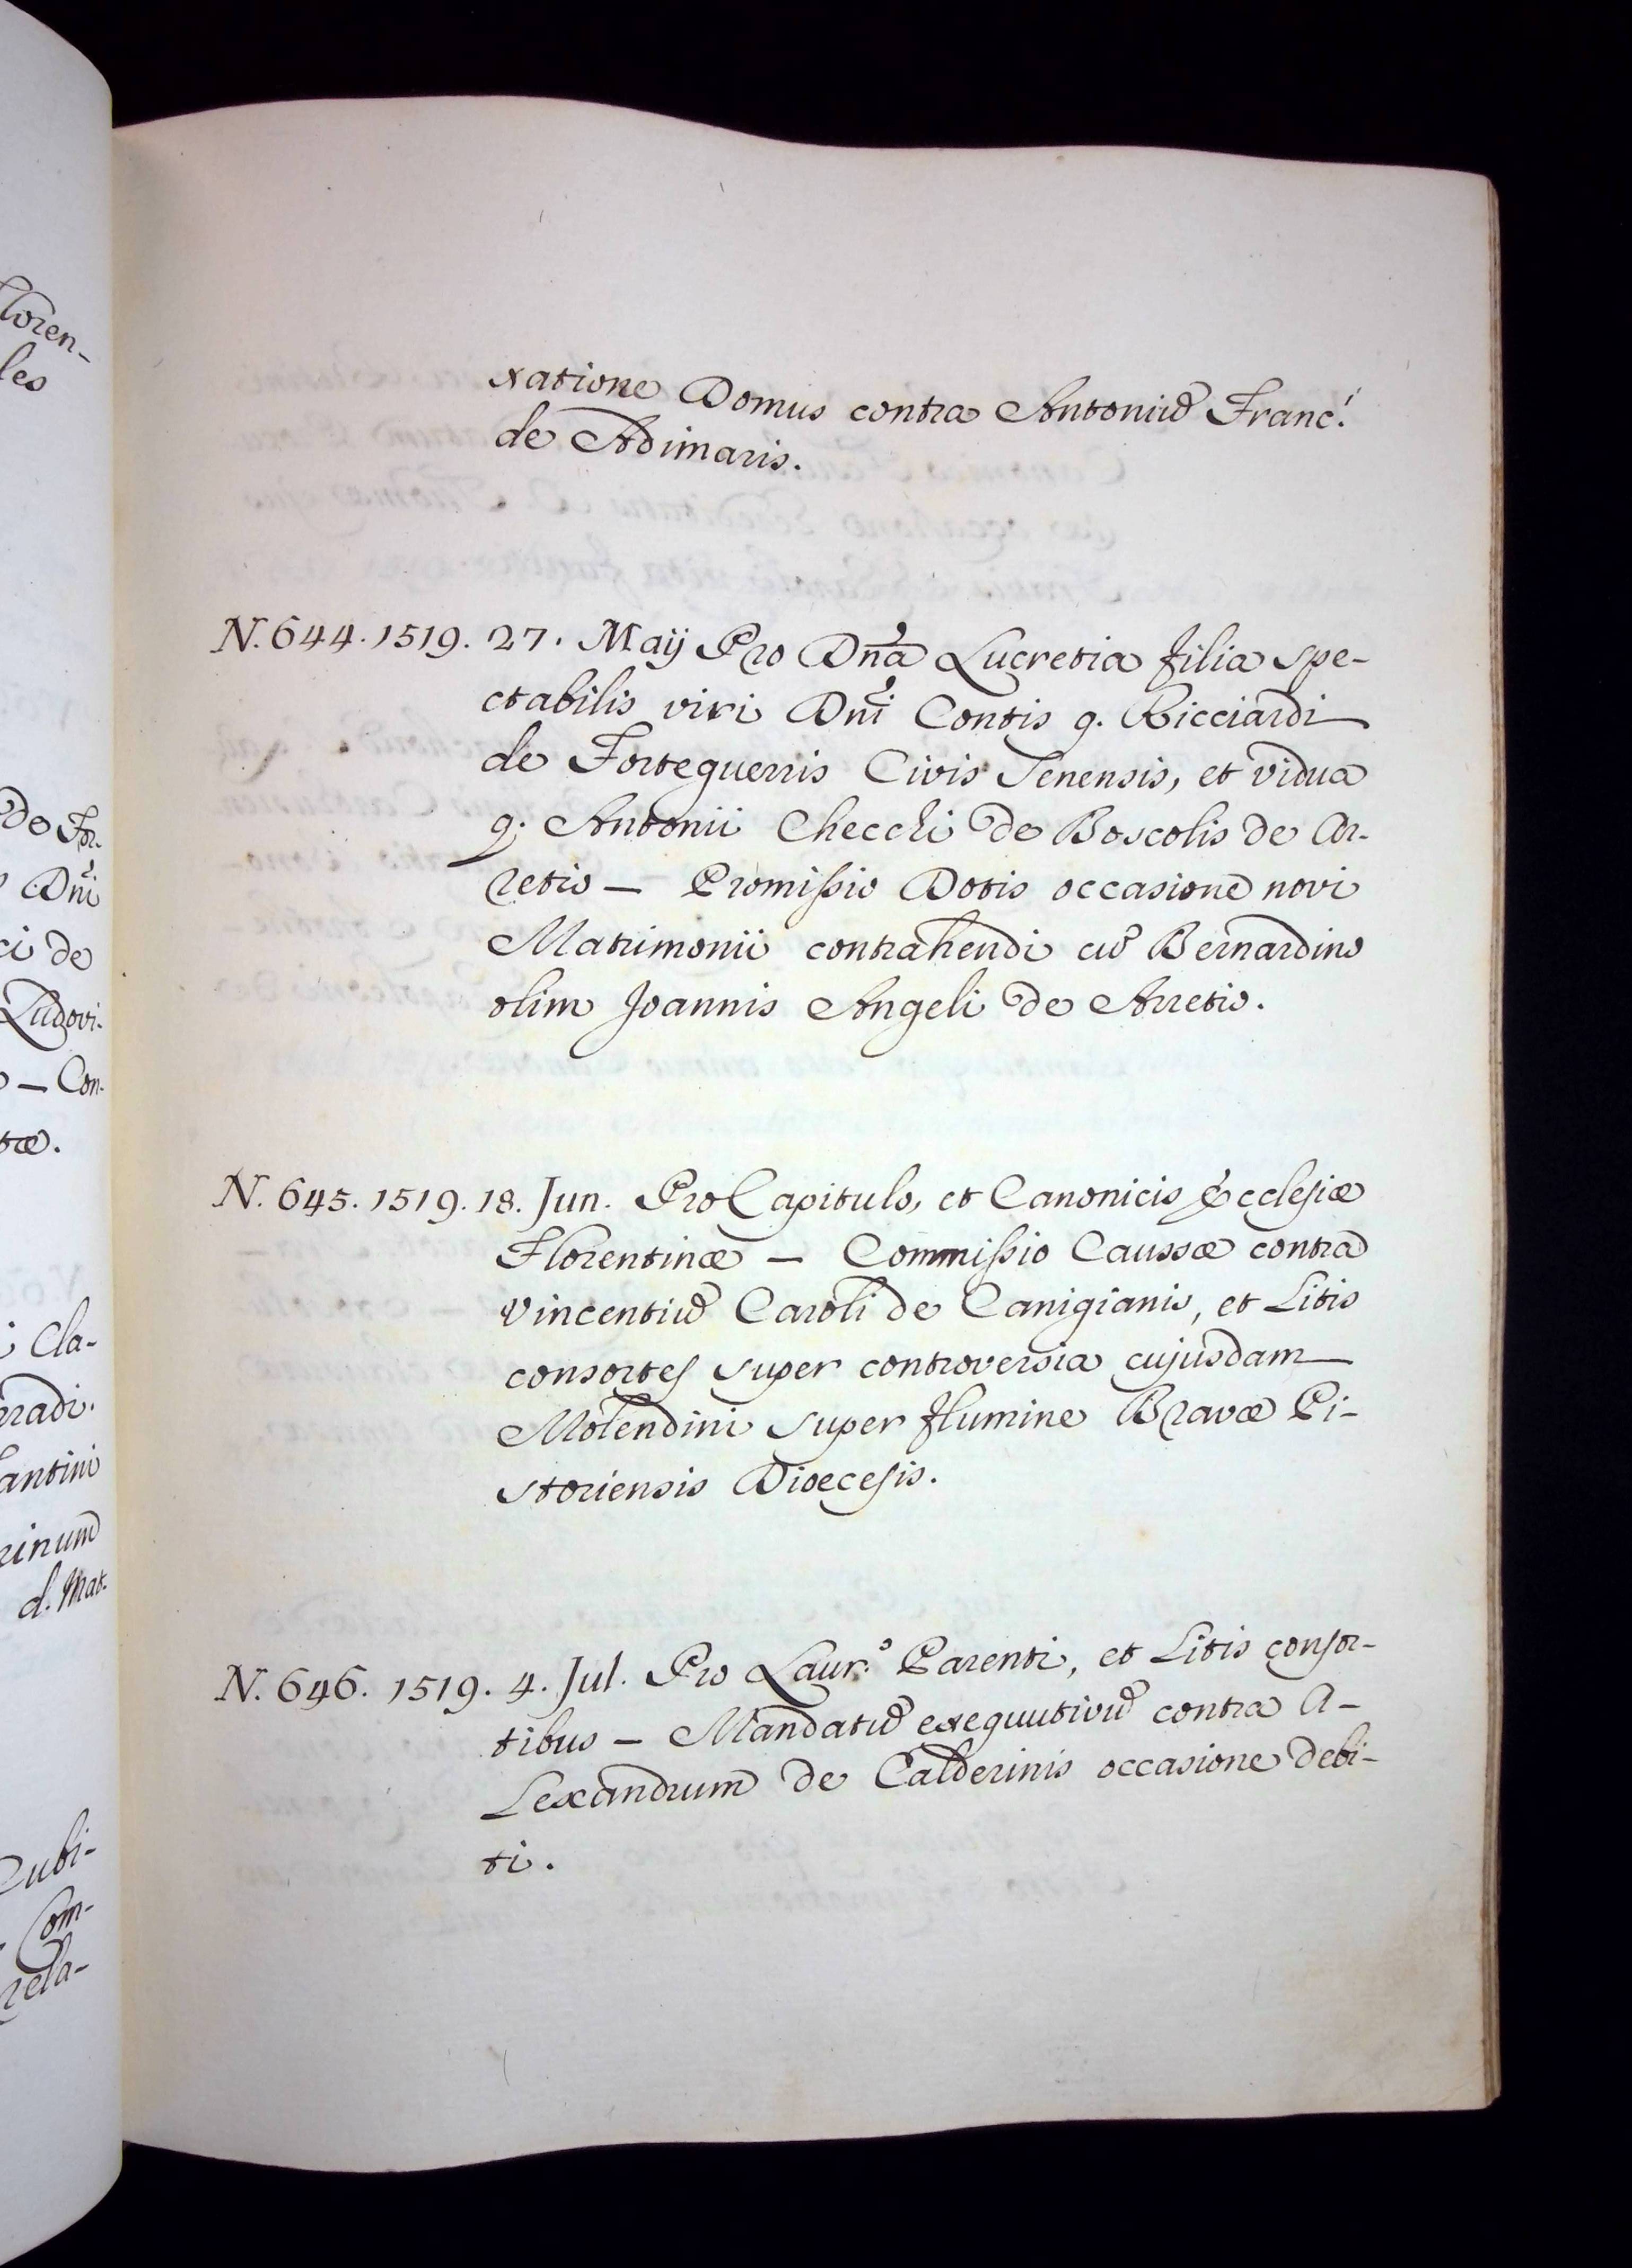 xatione Domus contra Antoniu͠ Franc.i
de Adimaris.
N. 644. 1519. 27. Maÿ Pro Dn͠a Lucretia filia spe-
ctabilis viri Dn͠i Contis q. Ricciardi
de Forteguerris Civis Senensis, et vidua
q. Antonii Checchi de Boscolis de Ar-
retio — Promissio Dotis occasione novi
Matrimonii contrahendi cu͠ Bernardino
olim Joannis Angeli de Arretio.
N. 645. 1519. 18. Jun. Pro Capitulo, et Canonicis Ecclesiæ
Florentinæ — Commissio Caussæ contra
Vincentiu͠ Caroli de Canigianis, et Litis
consortes super controversia cujusdam
Molendini super flumine Bravæ Pi-
storiensis Dioecesis.
N. 646. 1519. 4. Jul. Pro Laur.o Parenti, et Litis consor-
tibus — Mandatu͠ exequutivu͠ contra A-
lexandrum de Calderinis occasione debi-
ti.
loren-
les
Dn͠i
ci de
Ludovi-
— Con-
tæ.
Cla-
rradi.
antini
rinum
d. Mat-
Cubi-
Com-
rela-